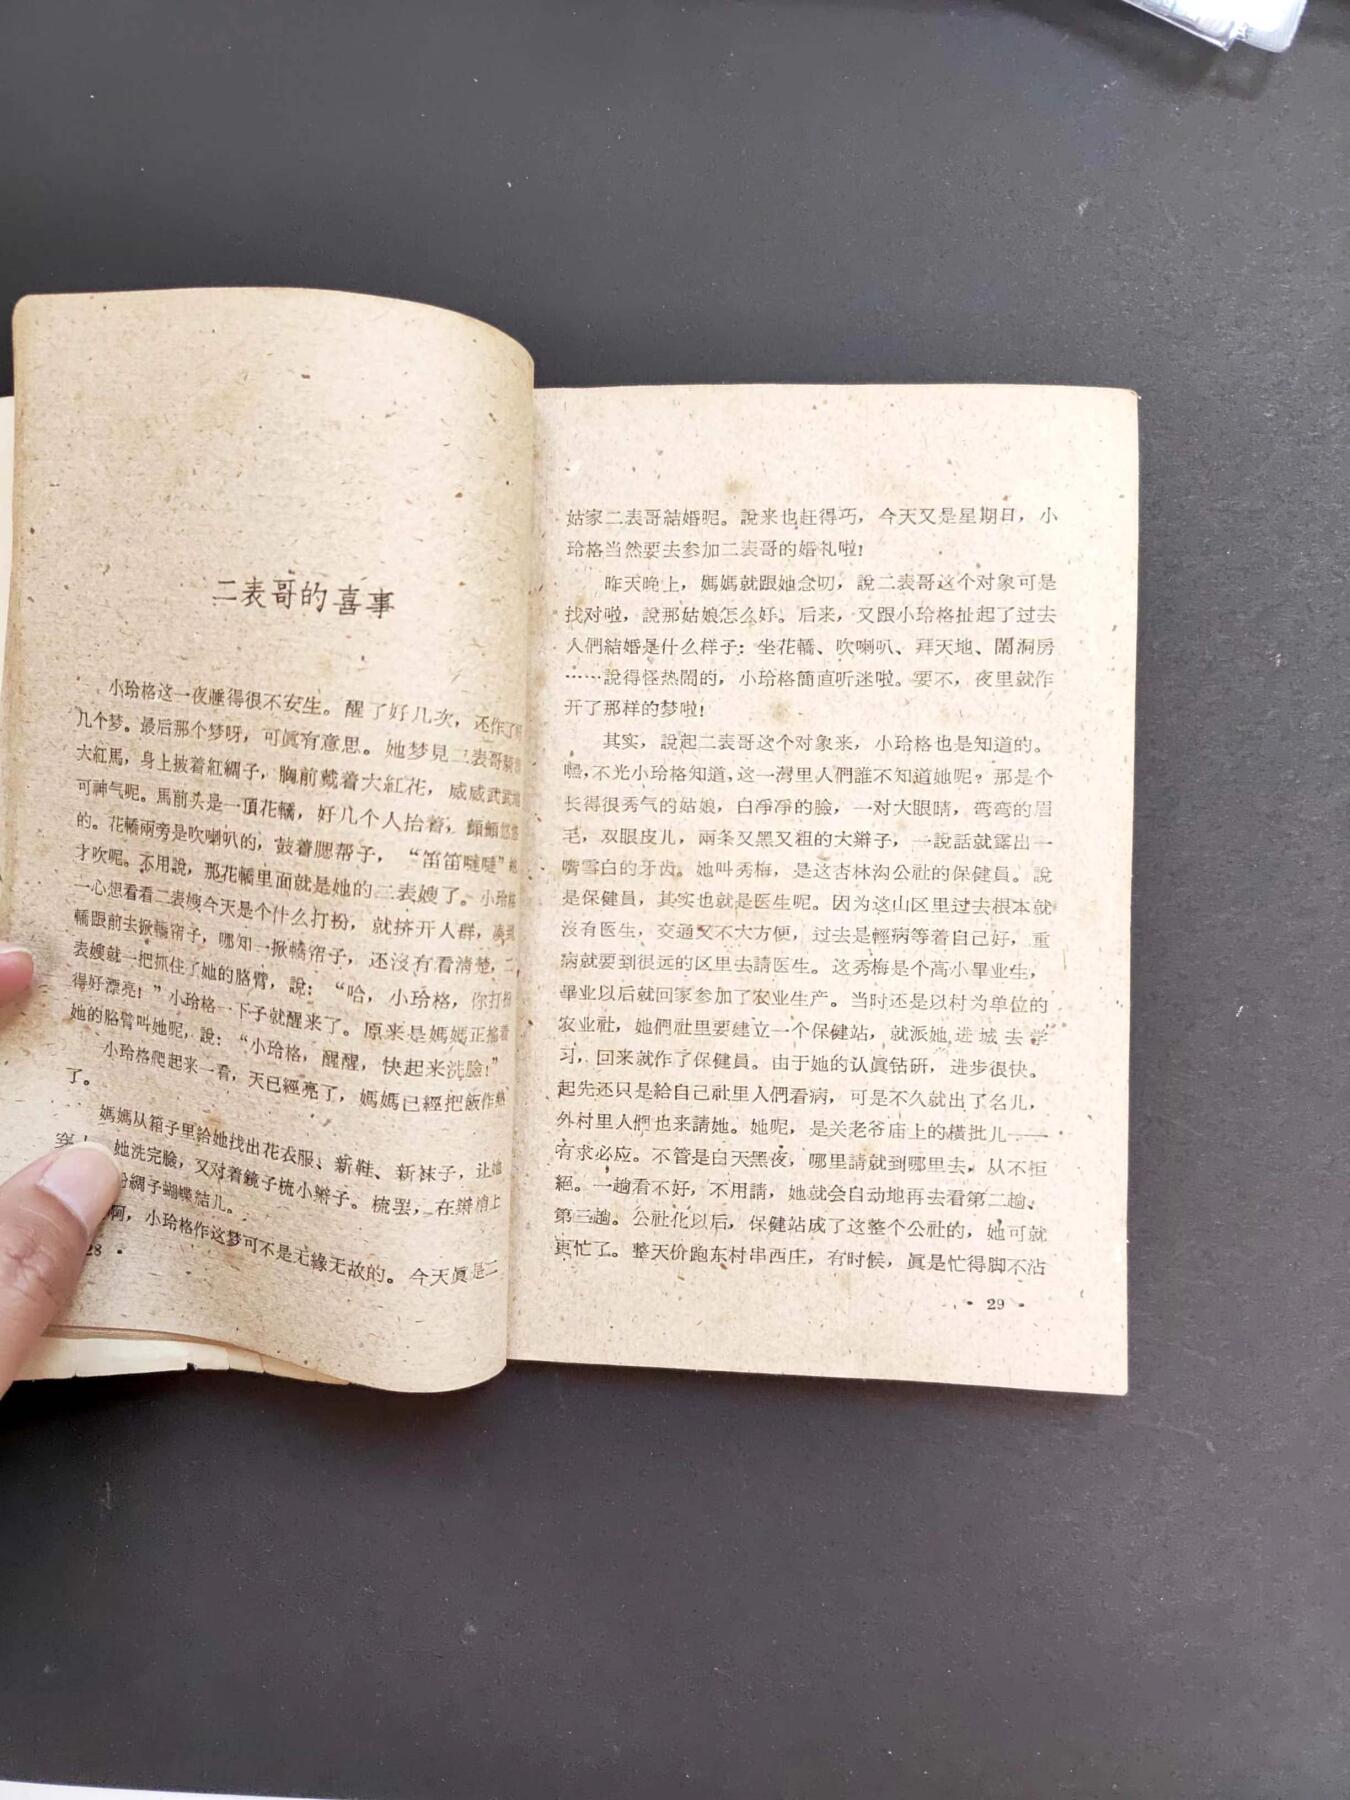 二表哥的喜事
小玲格这一夜睡得很不安生。醒了好几次，还作了
几个梦。最后那个梦呀，可眞有意思。她梦見二表哥騎
大紅馬，身上披着紅綢子，胸前戴着大紅花，威威武武
可神气呢。馬前头是一頂花轎，好几个人抬着，顫顫悠
的。花轎兩旁是吹喇叭的，鼓着腮帮子，“笛笛噠噠”
才吹呢。不用說，那花轎里面就是她的二表嫂了。小玲格
一心想看看二表嫂今天是个什么打扮，就挤开人群，凑
轎跟前去掀轎帘子，哪知一掀轎帘子，还沒有看清楚，二
表嫂就一把抓住了她的胳臂，說：“哈，小玲格，你打扮
得好漂亮！”小玲格一下子就醒来了。原来是媽媽正搖着
她的胳臂叫她呢，說：“小玲格，醒醒，快起来洗臉！”
小玲格爬起来一看，天已經亮了，媽媽已經把飯作熟
了。
媽媽从箱子里給她找出花衣服、新鞋、新袜子，让她
她洗完臉，又对着鏡子梳小辮子。梳罢，在辮梢上
粉綢子蝴蝶結儿。
啊，小玲格作这梦可不是无緣无故的。今天眞是二
28 ·
姑家二表哥結婚呢。說来也赶得巧，今天又是星期日，小
玲格当然要去参加二表哥的婚礼啦！
昨天晚上，媽媽就跟她念叨，說二表哥这个对象可是
找对啦，說那姑娘怎么好。后来，又跟小玲格扯起了过去
人們結婚是什么样子：坐花轎、吹喇叭、拜天地、鬧洞房
……說得怪热鬧的，小玲格簡直听迷啦。要不，夜里就作
开了那样的梦啦！
其实，說起二表哥这个对象来，小玲格也是知道的。
嘿，不光小玲格知道，这一灣里人們誰不知道她呢？那是个
长得很秀气的姑娘，白淨淨的臉，一对大眼睛，弯弯的眉
毛，双眼皮儿，兩条又黑又粗的大辮子，一說話就露出一
嘴雪白的牙齿。她叫秀梅，是这杏林沟公社的保健員。說
是保健員，其实也就是医生呢。因为这山区里过去根本就
沒有医生，交通又不大方便，过去是輕病等着自己好，重
病就要到很远的区里去請医生。这秀梅是个高小畢业生，
畢业以后就回家参加了农业生产。当时还是以村为单位的
农业社，她們社里要建立一个保健站，就派她进城去学
习，回来就作了保健員。由于她的认眞钻硏，进步很快。
起先还只是給自己社里人們看病，可是不久就出了名儿，
外村里人們也来請她。她呢，是关老爷庙上的橫批儿——
有求必应。不管是白天黑夜，哪里請就到哪里去，从不拒
絕。一趟看不好，不用請，她就会自动地再去看第二趟、
第三趟。公社化以后，保健站成了这整个公社的，她可就
更忙了。整天价跑东村串西庄，有时候，眞是忙得脚不沾
· 29 ·